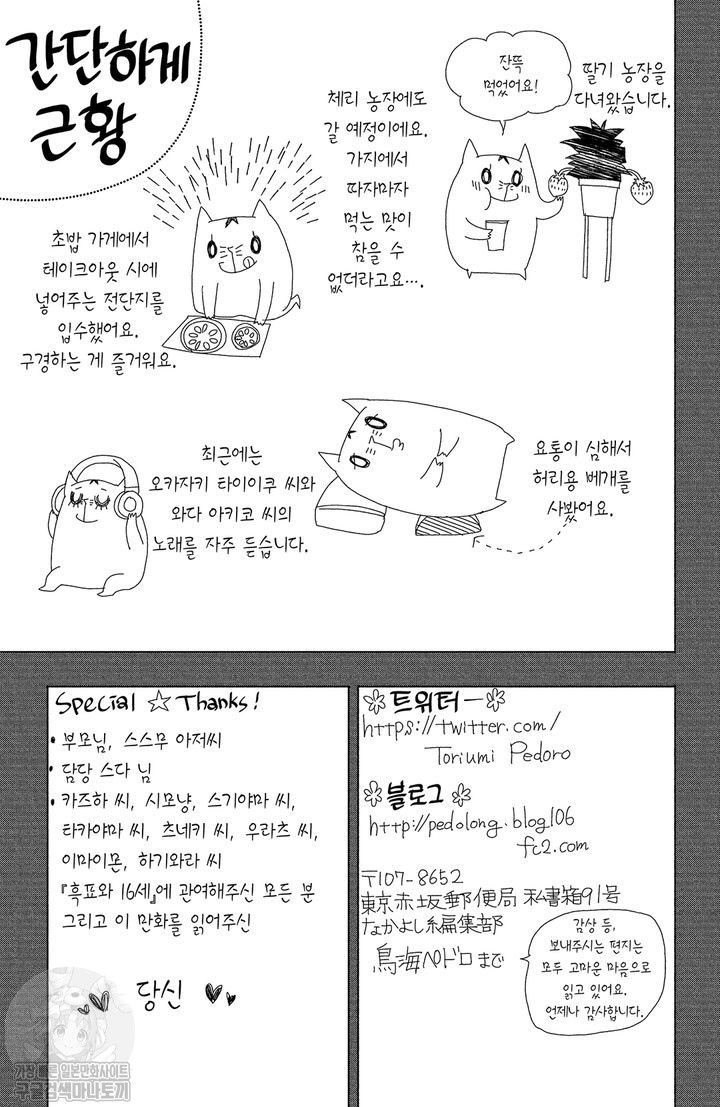 간단하게
근황
딸기 농장을
다녀왔습니다.
잔뜩
먹었어요!
체리 농장에도
갈 예정이에요.
가지에서
따자마자
먹는 맛이
참을 수
없더라고요….
초밥 가게에서
테이크아웃 시에
넣어주는 전단지를
입수했어요.
구경하는 게 즐거워요.
요통이 심해서
허리용 베개를
사봤어요.
최근에는
오카자키 타이이쿠 씨와
와다 아키코 씨의
노래를 자주 듣습니다.
Special ☆ Thanks!
• 부모님, 스스무 아저씨
• 담당 스다 님
• 카즈하 씨, 시모냥, 스기야마 씨,
타카야마 씨, 츠네키 씨, 우라츠 씨,
이마이몬, 하기와라 씨
『흑표와 16세』에 관여해주신 모든 분
그리고 이 만화를 읽어주신
당신
트위터
https://twitter.com/
Toriumi Pedoro
블로그
http://pedolong.blog106
fc2.com
〒107-8652
東京赤坂郵便局 私書箱91号
なかよし編集部
鳥海ペドロまで
감상 등,
보내주시는 편지는
모두 고마운 마음으로
읽고 있어요.
언제나 감사합니다.
가장 빠른 일본만화사이트
구글검색마나토끼